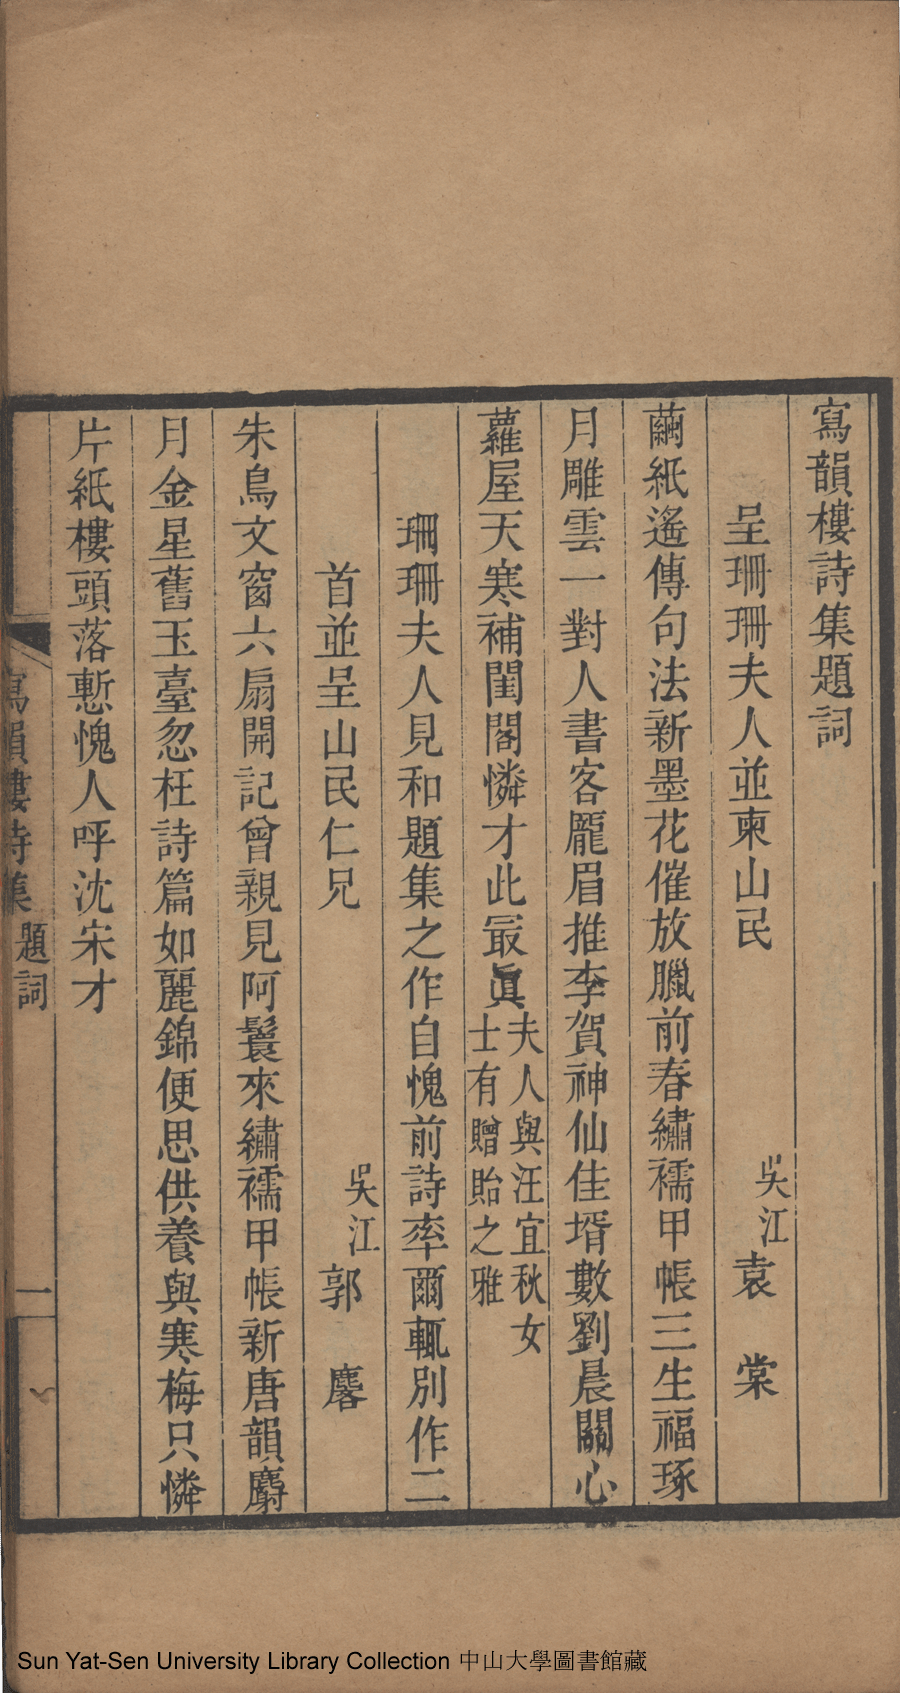 寫韻樓詩集題詞
呈珊珊夫人並柬山民
吳江袁棠
繭紙遙傳句法新墨花催放臘前春繡襦甲帳三生福琢
月雕雲一對人書客龐眉推李賀神仙佳壻數劉晨關心
蘿屋天寒補閨閣憐才此最眞夫人與汪宜秋女
士有贈貽之雅
珊珊夫人見和題集之作自愧前詩率爾輒別作二
首並呈山民仁兄
吳江郭麐
朱鳥文窗六扇開記曾親見阿鬟來繡襦甲帳新唐韻麝
月金星舊玉臺忽枉詩篇如麗錦便思供養與寒梅只憐
片紙樓頭落慙愧人呼沈宋才
寫韻樓詩集
題詞
一
Sun Yat-Sen University Library Collection 中山大學圖書館藏